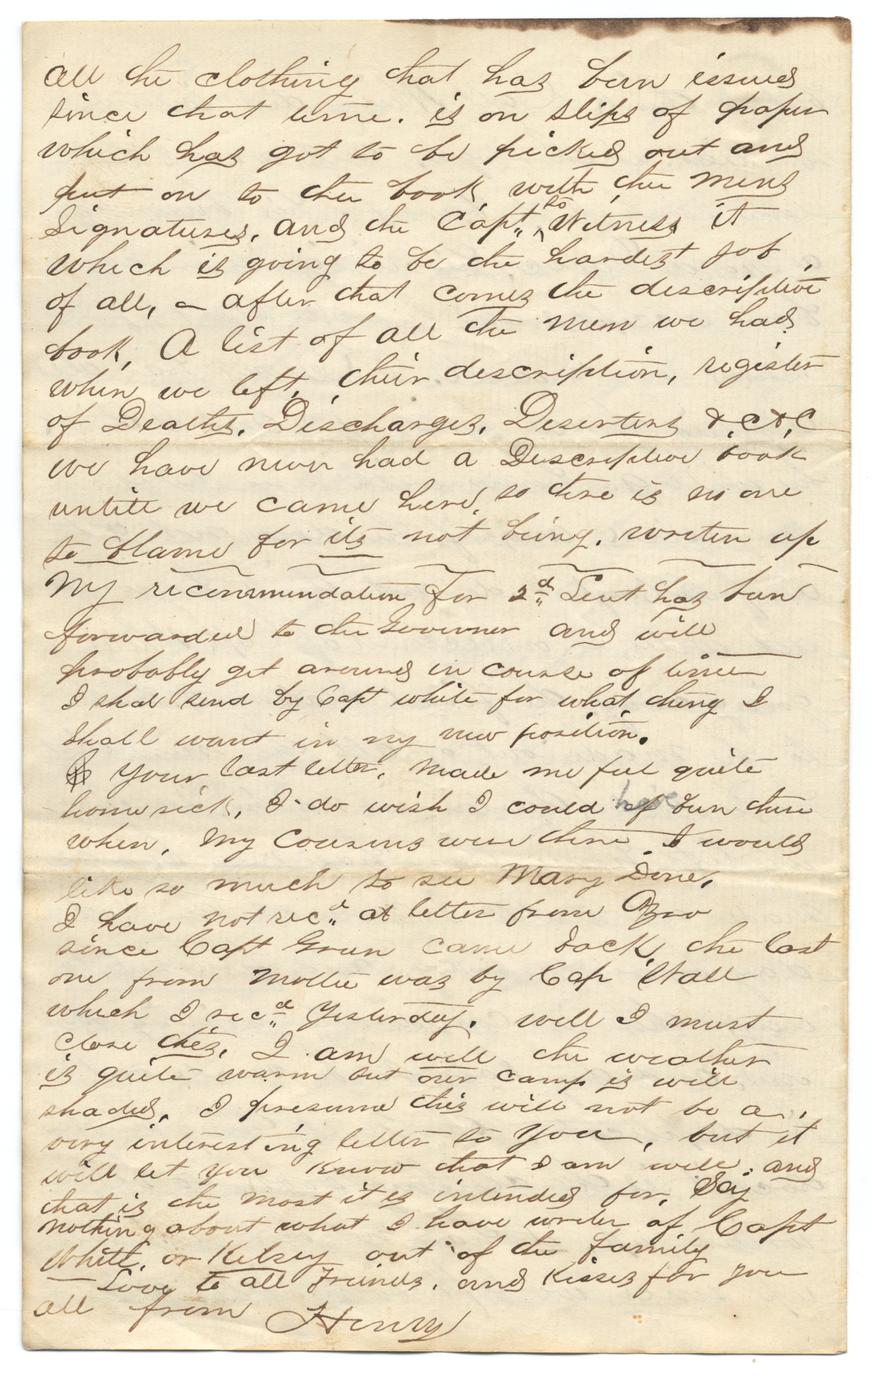 all the clothing that has been issued
since that time. is on slips of paper
which has got to be picked out and
put on to the book with the mens
Signatures, and the Capt. to Witness it
which is going to be the hardest job
of all, – after that comes the descriptive
book, A list of all the men we had
when we left, their description, register
of Deaths, Discharges, Deserters &c &c
we have never had a Descriptive book
untill we came here, so there is no one
to blame for its not being, writen up
My recommendation for 2d Leut has been
forwarded to the Governer and will
probably get around in course of time
I shal send by Capt white for what thing I
shall want in my new position.
Your last letter, made me feel quite
homesick, I do wish I could have been there
when, My Cousins were there I would
like so much to see Mary Done,
I have not recd at letter from
since Capt Green came back, the last
one from Mollie was by Cap Wall
which I recd Yesterday. well I must
close this, I am well the weather
is quite warm but our camp is well
shaded, I presume this will not be a
very interesting letter to You, but it
will let you Know that I am well and
that is the most it is intended for, Say
nothing about what I have writer of Capt
White, or Kelsey out of the family
Love to all Friends, and Kisses for you
all from Henry